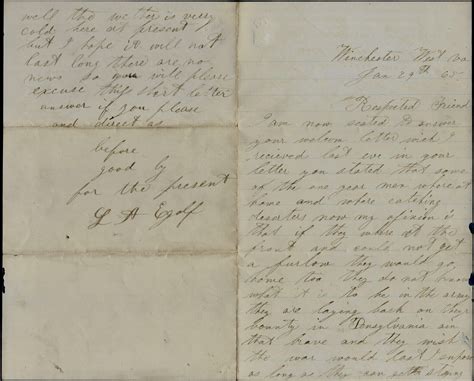 Winchester West va
Jan 29th 65
Respected Friend
I am now seated to answer
your welcom letter wich I
recieved last eve in your
letter you stated that some
of the one year men where at
home and where catching
deserters now my opinion is
that if they where at the
front and could not get
a furlow they would go
home too they do not know
what it is to be in the army
they are laying back on their
bounty in Pennsylvania ain
that brave and they wish
the war would last I supose
as long as they can
well the wether is very
cold here at present
but I hope it will not
last long there are no
news so you will please
excuse this short letter
answer if you please
and direct as
before
good by
for the present
L A Egolf